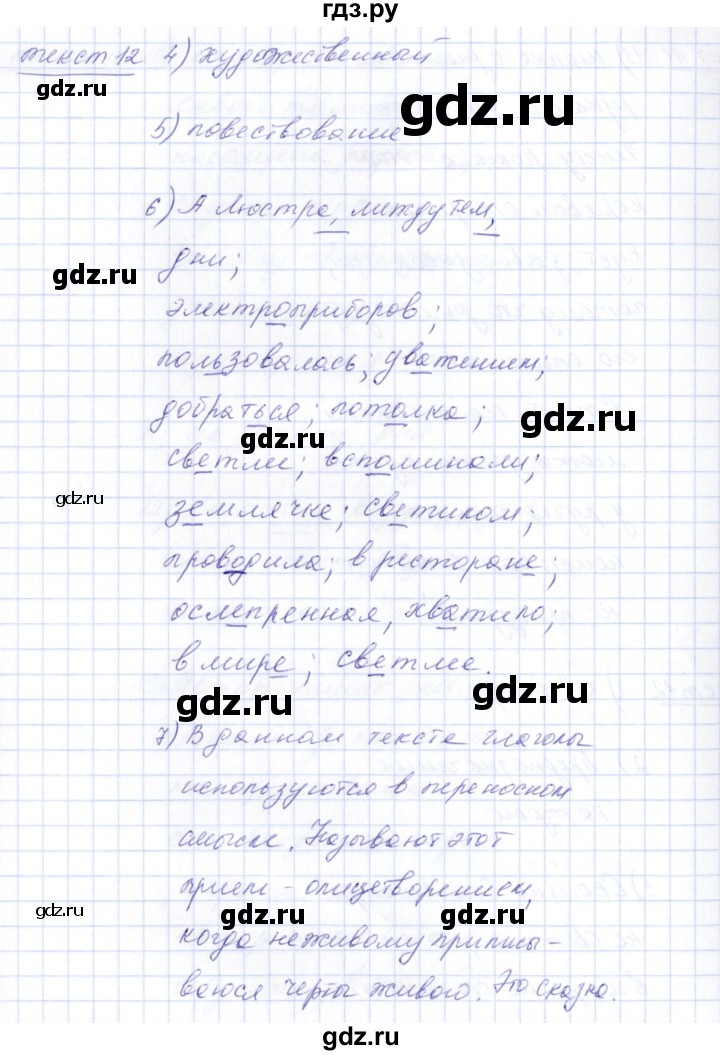 гдз.ру
текст 12 4) художественный
gdz.ru
gdz.ru
5) повествование
6) А люстра, между тем,
gdz.ru
дни;
gdz.ru
электроприборов;
пользовалась; уважением;
gdz.ru
добраться; потолка;
gdz.ru
gdz.ru
светлее; вспоминали;
gdz.ru
землячке; светиком;
проводила; в ресторане;
gdz.ru
ослепленная, хватило;
gdz.ru
в мире; светлее.
gdz.ru
gdz.ru
7) В данном тексте глаголы
используются в переносном
смысле. Называют этот
gdz.ru
прием – олицетворением,
gdz.ru
gdz.ru
gdz.ru
когда неживому приписы-
ваются черты живого. Это сказка.
gdz.ru